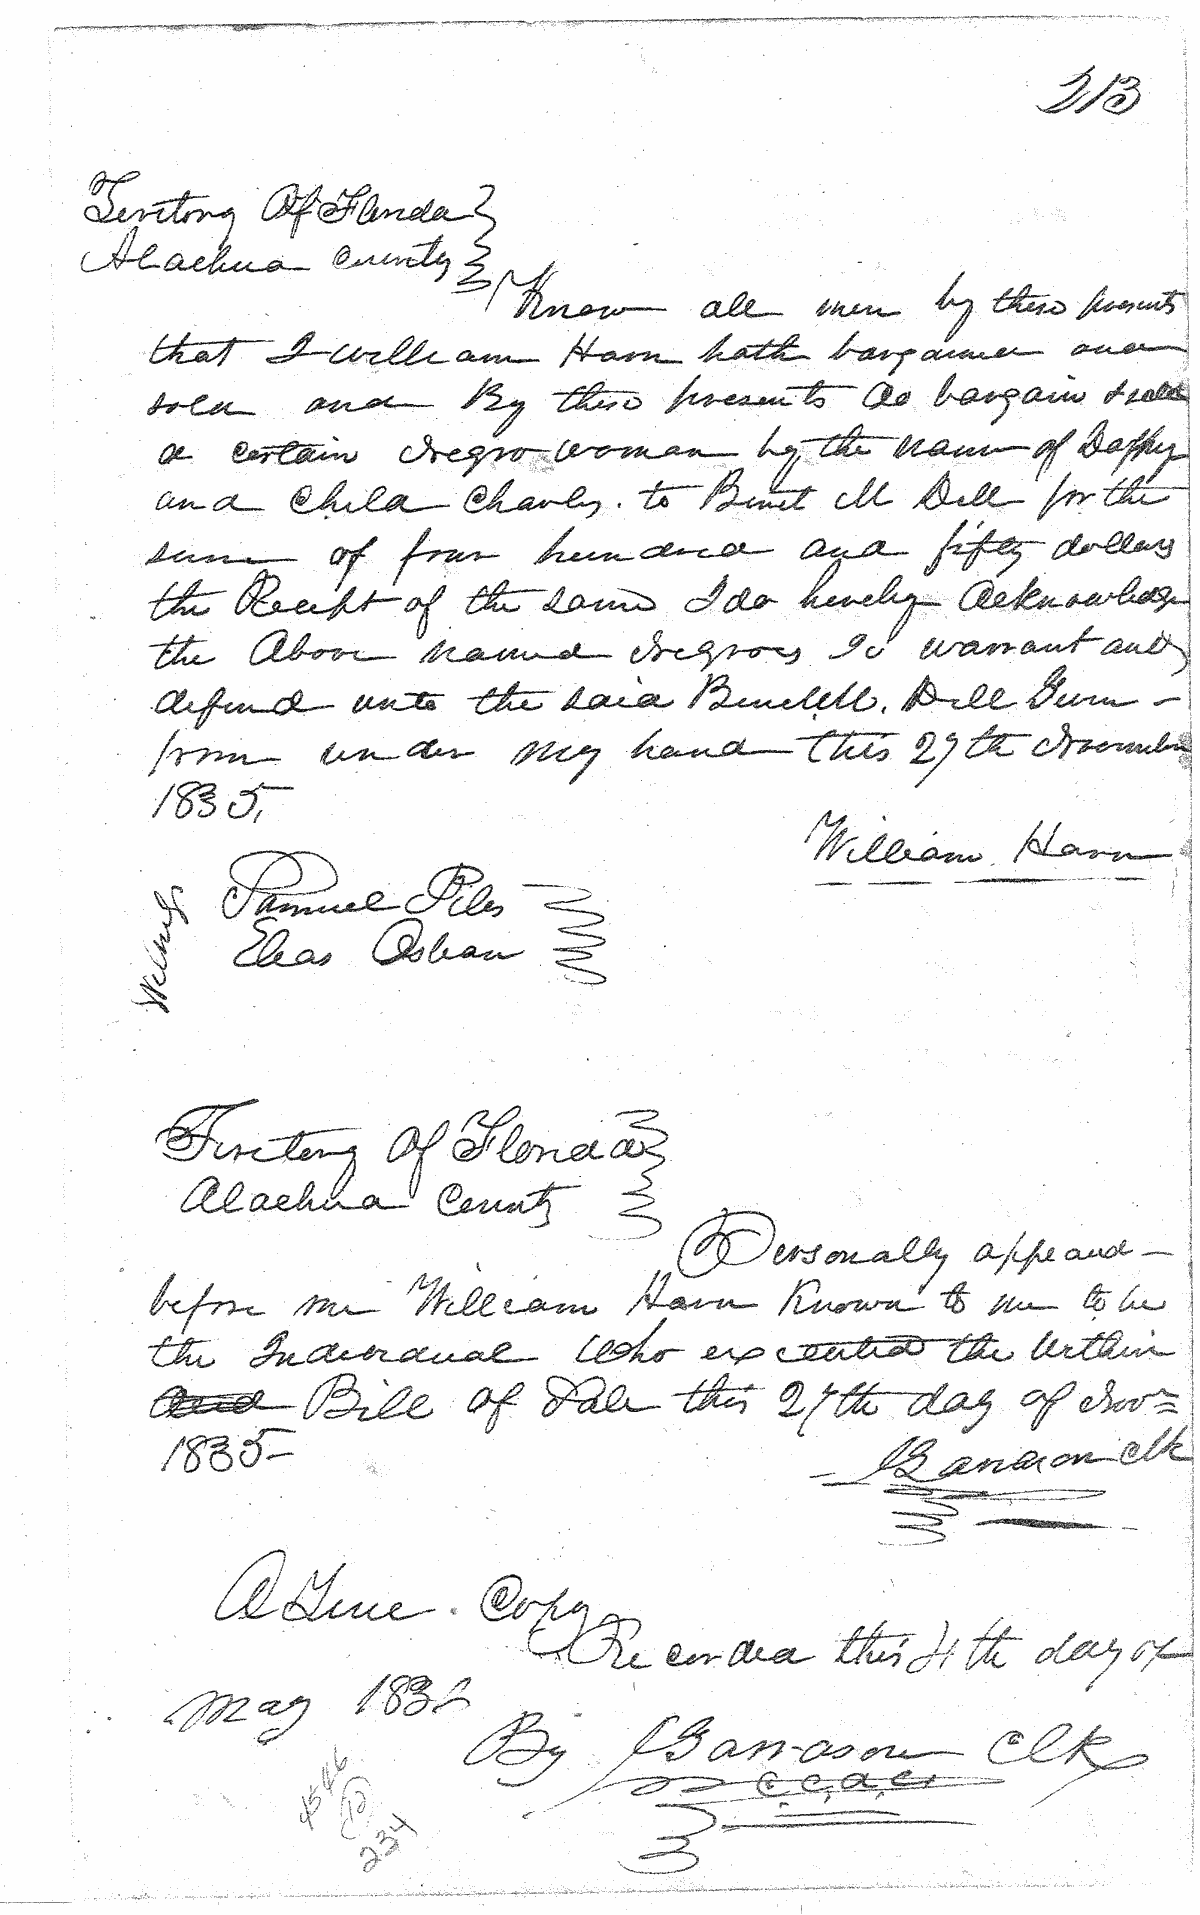 213
Territory Of Florida
Alachua County
Know all men by these presents
that I William Harn hath bargained and
sold and By these presents do bargain & sell
a certain Negro woman by the name of Daphy
and Child Charles. to Benet M Dell for the
sum of four hundred and fifty dollars
the Receipt of the same I do hereby Acknowledge
the Above named Negroes to warrant and
defend unto the said Benet M. Dell Given -
from under my hand this 27th November
1835,
William Harn
Witness
Samuel Piles
Elias Osban
Territory Of Florida
Alachua County
Personally appeard -
before me William Harn Known to me to be
the Individual Who executed the Within
and Bill of Sale this 27th day of Nov
1835 -
Clk
A True Copy
Recorded this 4th day of
May 183
By Garrason Clk
C. C. A. C.
4546
234